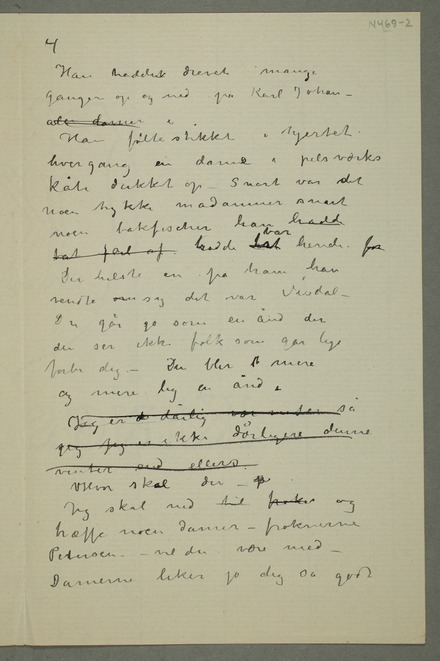 N469-2
4
Han hadde drevet mange
ganger op og ned på Karl Johan –
alle damer i
Han følte stikket i hjertet
hvergang en dame i pelsværks
kåbe dukket op – Snart var det
noen tykke madammer snart
noen bakfischer han hadd
tat feil af. hadde tat for hende. for
Der hilste en på ham han
vendte om sig det var Vindal –
Du går jo som en ånd der
du ser ikke folk som går lige
forbi dig – Du blir mere
og mere lig en ånd.
Jeg er dårlig så
jeg er ikke dårligere denne
vinter end ellers.
Hvor skal du –
Jeg skal ned til og
træffe noen damer – frøknerne
Petersen – vil du være med –
Damerne liker jo dig så godt